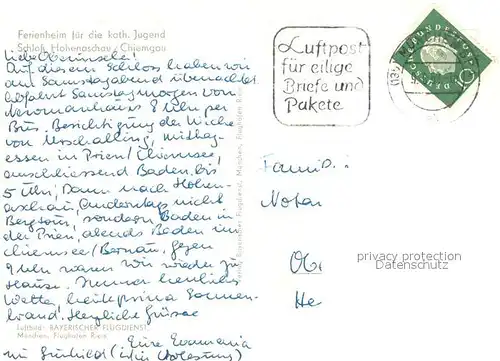 Ferienheim für die kath. Jugend
Schloß Hohenaschau / Chiemgau
Liebe Oberinselei!
Auf diesem Schloss haben wir
am Samstagabend übernachtet
Abfahrt Samstagmorgen vom
Newmanhaus 8 Uhr per
Bus. Besichtigung der Kirche
von Urschalling, Mittag-
essen in Prien / Chiemsee,
anschliessend Baden bis
5 Uhr, Dann nach Hohen-
aschau, anderntags nicht
Bergtour, sondern Baden in
der Prien, abends Baden im
Chiemsee / Bernau. Gegen
9 Uhr waren wir wieder zu
Hause. Immer herrliches
Wetter, heute prima Sonnen-
brand. Herzliche Grüsse
Luftbild: BAYERISCHER FLUGDIENST
München, Flughafen Riem
Eure Evamaria
mit (in der Vorlesung)
Luftpost
für eilige
Briefe und
Pakete
DEUTSCHE BUNDESPOST
10
(13
Famili
Notar
Ob
He
privacy protection
Datenschutz